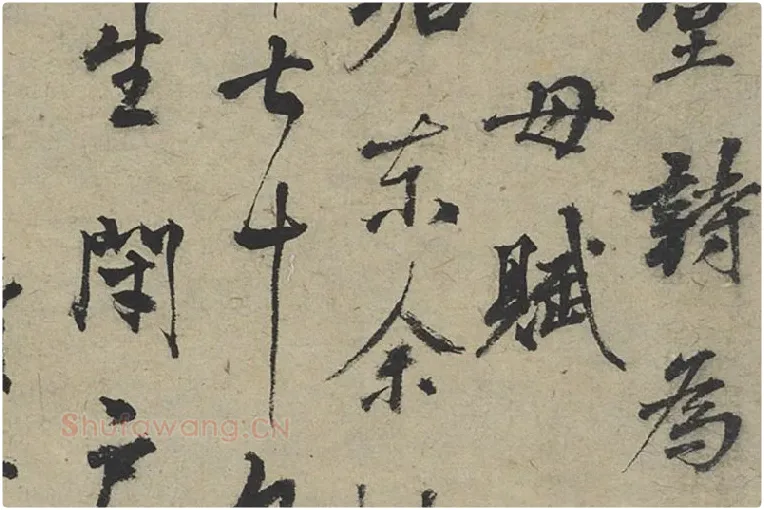 堂詩為
母賦
东余
七十
生閉户
Shufawang.CN